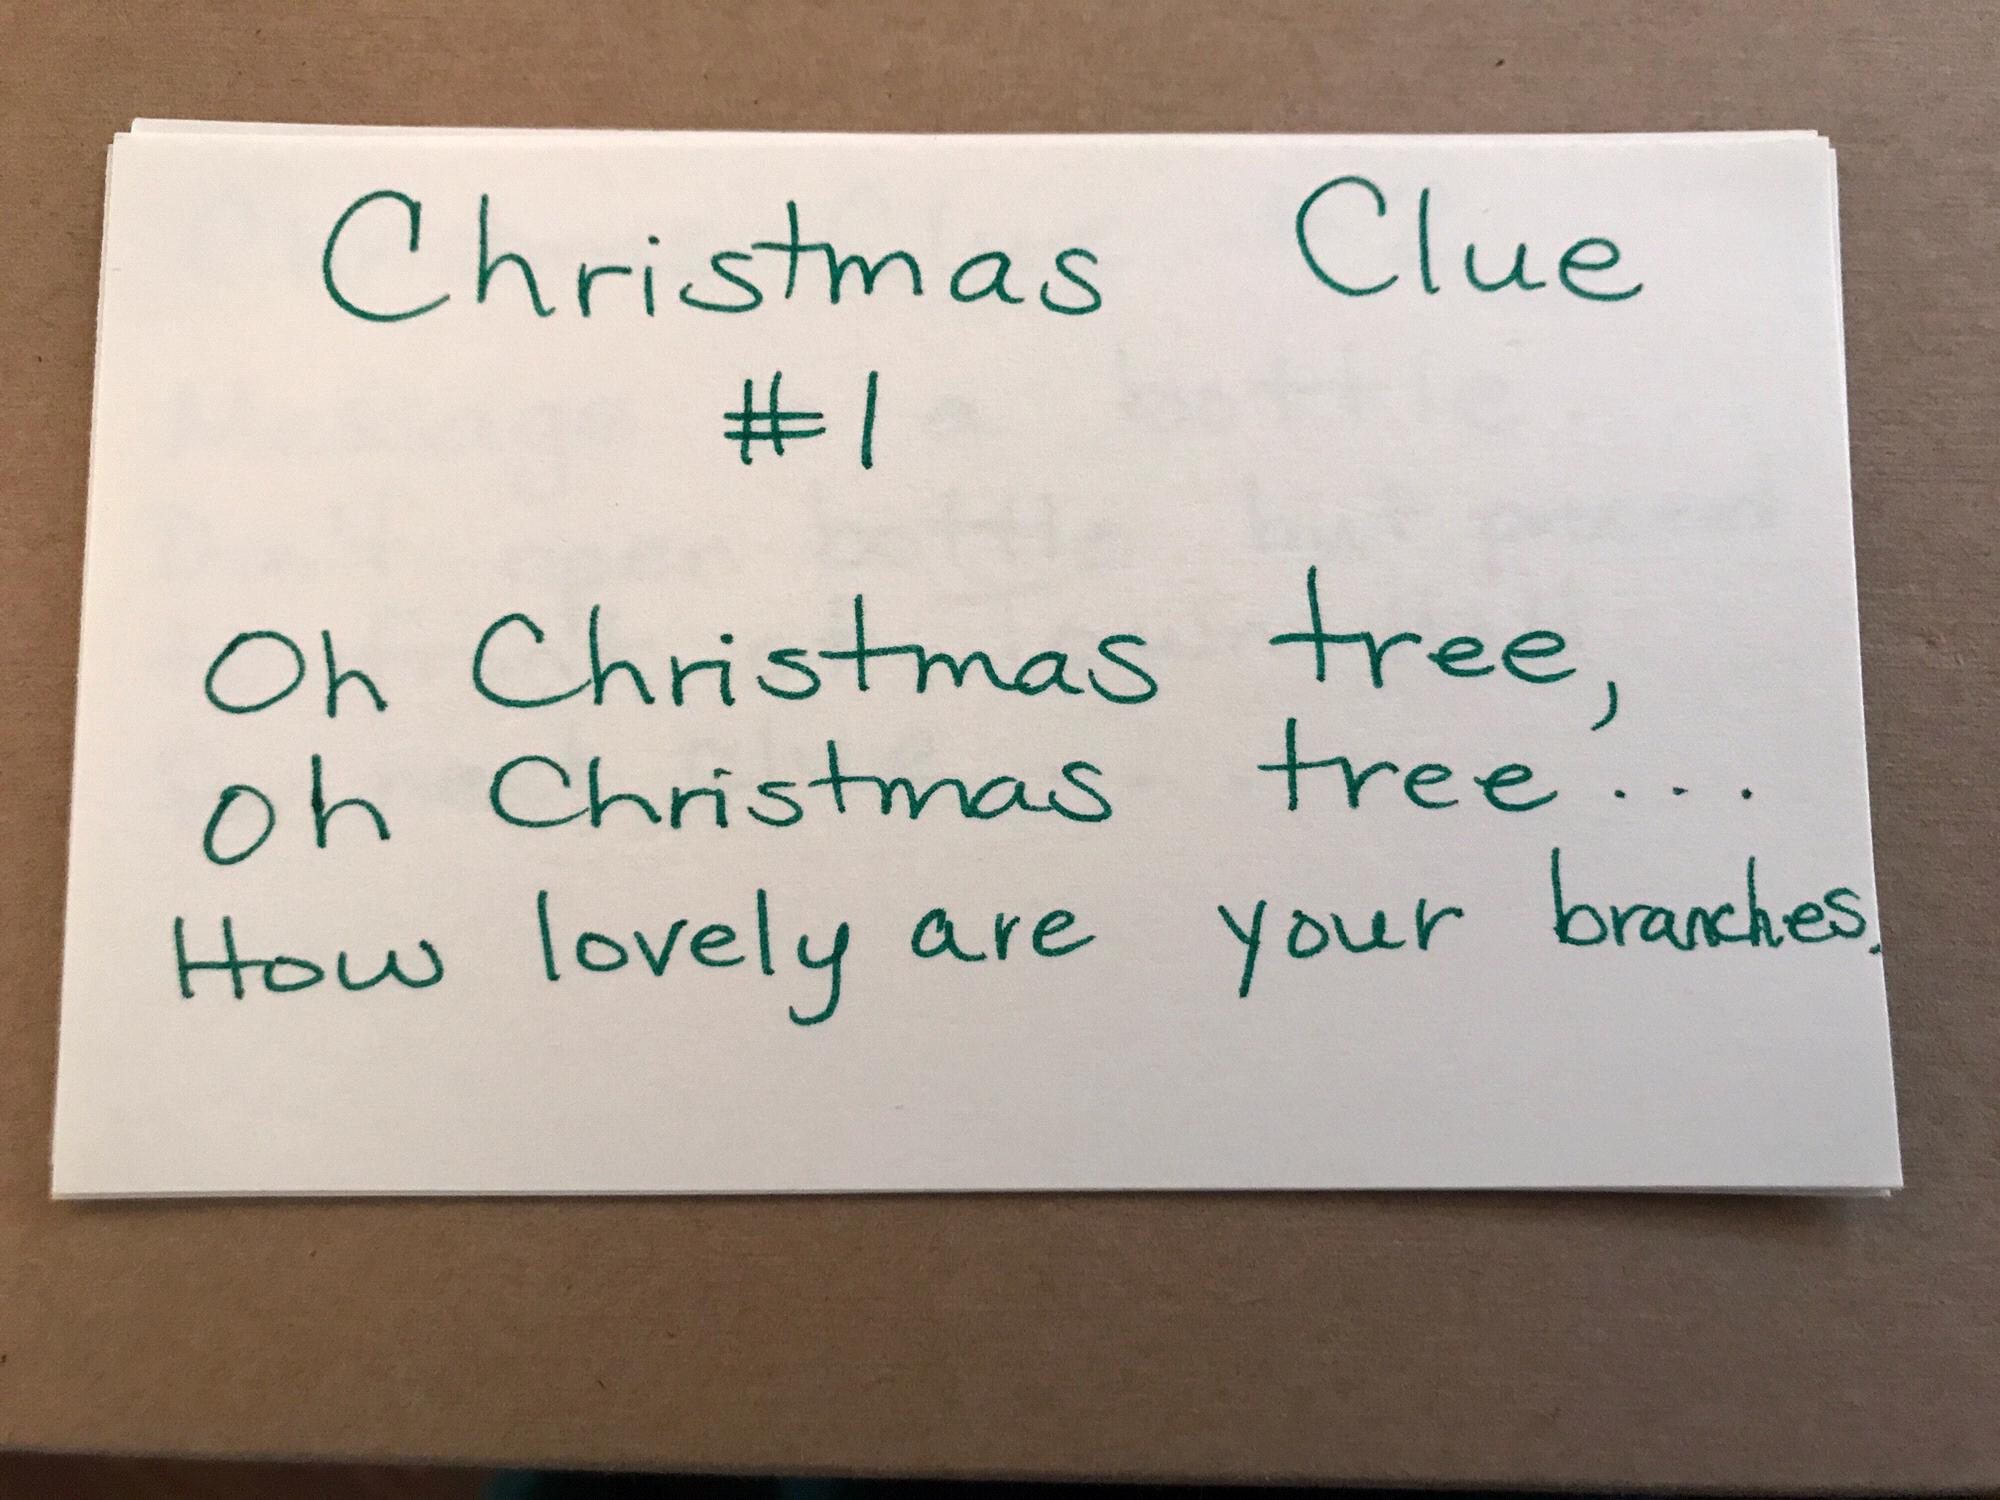 Christmas Clue
#1
Oh Christmas tree,
oh Christmas tree...
How lovely are your branches.